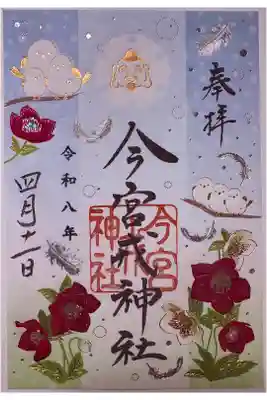 奉拝
今宮戎神社
今宮
神社
令和八年
四月十一日